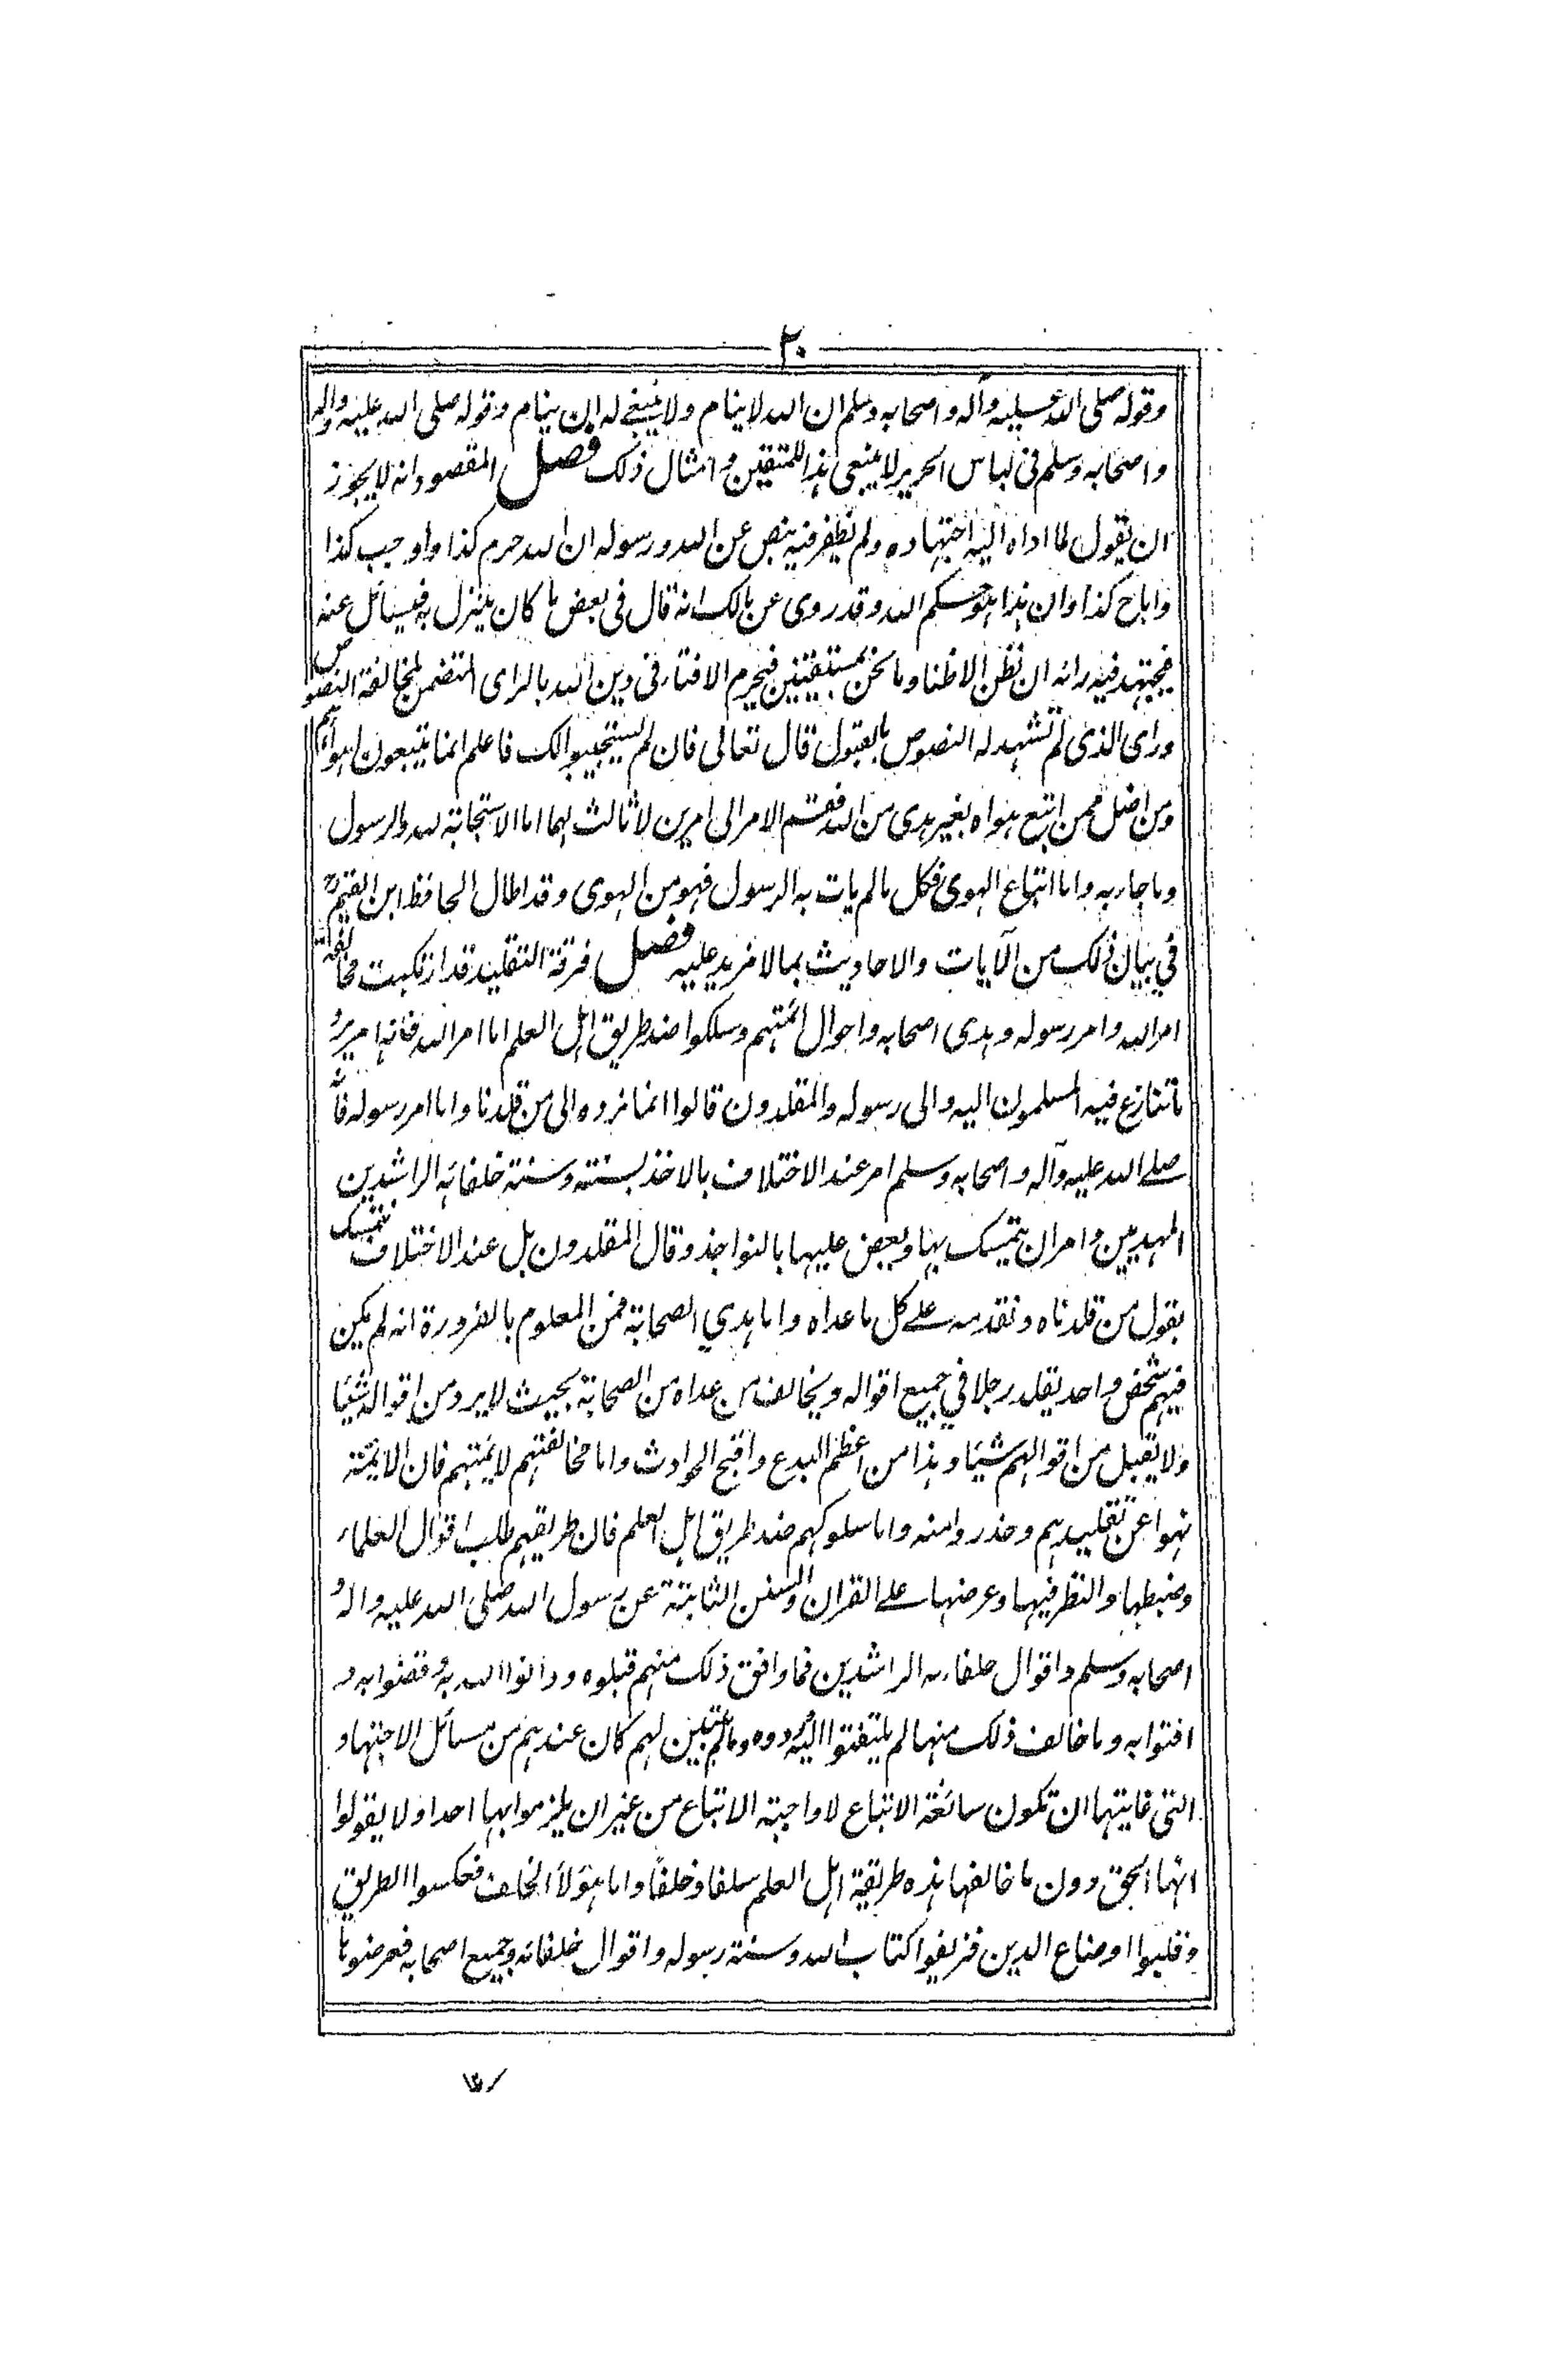 ٢٠
وقوله صلى الله عليه وآله واصحابه وسلم ان الله لا ينام ولا ينبغي له ان ينام وقوله صلى الله عليه واله
واصحابه وسلم فى لباس الحرير لا ينبغى هذا للمتقين وامثال ذلك فصل المقصود انه لا يجوز
ان يقول لما اداه اليه اجتهاده ولم يظفر فيه بنص عن الله ورسوله ان الله حرم كذا واوجب كذا
واباح كذا وان هذا هو حكم الله وقد روى عن مالك انه قال فى بعض ما كان ينزل به فيسائل عنه
فيجتهد فيه رائه ان نظن الا ظنا وما نحن بمستيقنين فيحرم الافتاء فى دين الله بالراى المتضمن لمخالفة النصوص
وراى الذى لم تشهد له النصوص بالقبول قال تعالى فان لم يستجيبوا لك فاعلم انما يتبعون اهوائهم
ومن اضل ممن اتبع هواه بغير هدى من الله فقسم الامر الى امرين لا ثالث لهما اما الاستجابة لله والرسول
وما جاء به واما اتباع الهوى فكل ما لم يات به الرسول فهو من الهوى وقد اطال الحافظ ابن القيم رح
في بيان ذلك من الآيات والاحاديث بما لا مزيد عليه فصل فرقة التقليد قد ارتكبت مخالفة
امر الله وامر رسوله وهدى اصحابه واحوال ائمتهم وسلكوا ضد طريق اهل العلم اما امر الله فانه امر برد
ما تنازع فيه المسلمون اليه والى رسوله والمقلدون قالوا انما نرده الى من قلدنا واما امر رسوله فانه
صلے الله عليه وآله واصحابه وسلم امر عند الاختلاف بالاخذ بسنته وسنة خلفائه الراشدين
المهديين وامر ان يتمسك بها ويعض عليها بالنواجذ وقال المقلدون بل عند الاختلاف نتمسك
بقول من قلدناه ونقدمه علے كل ما عداه واما هدي الصحابة فمن المعلوم بالضرورة انه لم يكن
فيهم شخص واحد يقلد رجلا في جميع اقواله ويخالف من عداه من الصحابة بحيث لا يرد من اقواله شيئا
ولا يقبل من اقوالهم شيئا وهذا من اعظم البدع واقبح الحوادث واما مخالفتهم لايمتهم فان الايمة
نهوا عن تقليدهم وحذروا منه واما سلوكهم ضد طريق اهل العلم فان طريقهم طلب اقوال العلماء
وضبطها والنظر فيها وعرضها علے القران والسنن الثابتة عن رسول الله صلى الله عليه واله و
اصحابه وسلم واقوال خلفاءه الراشدين فما وافق ذلك منهم قبلوه ودانوا الله به وقضوا به و
افتوا به وما خالف ذلك منها لم يلتفتوا اليه وردوه وما لم يتبين لهم كان عندهم من مسائل الاجتهاد
التى غايتها ان تكون سائغة الاتباع لا واجبة الاتباع من غير ان يلزموا بها احدا ولا يقولوا
انها الحق دون ما خالفها هذه طريقة اهل العلم سلفا وخلفًا واما هؤلاء الخلف فعكسوا الطريق
وقلبوا اوضاع الدين فزيفوا كتاب الله وسنة رسوله واقوال خلفائه وجميع اصحابه فعرضوها